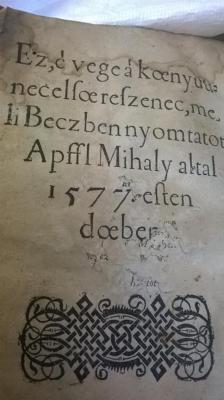 Ez, é vege á kœnyuu=
nec elsœ reszenec, me,
li Beczben nyomtatot
Apffl Mihaly altal
1577. esten
dœber